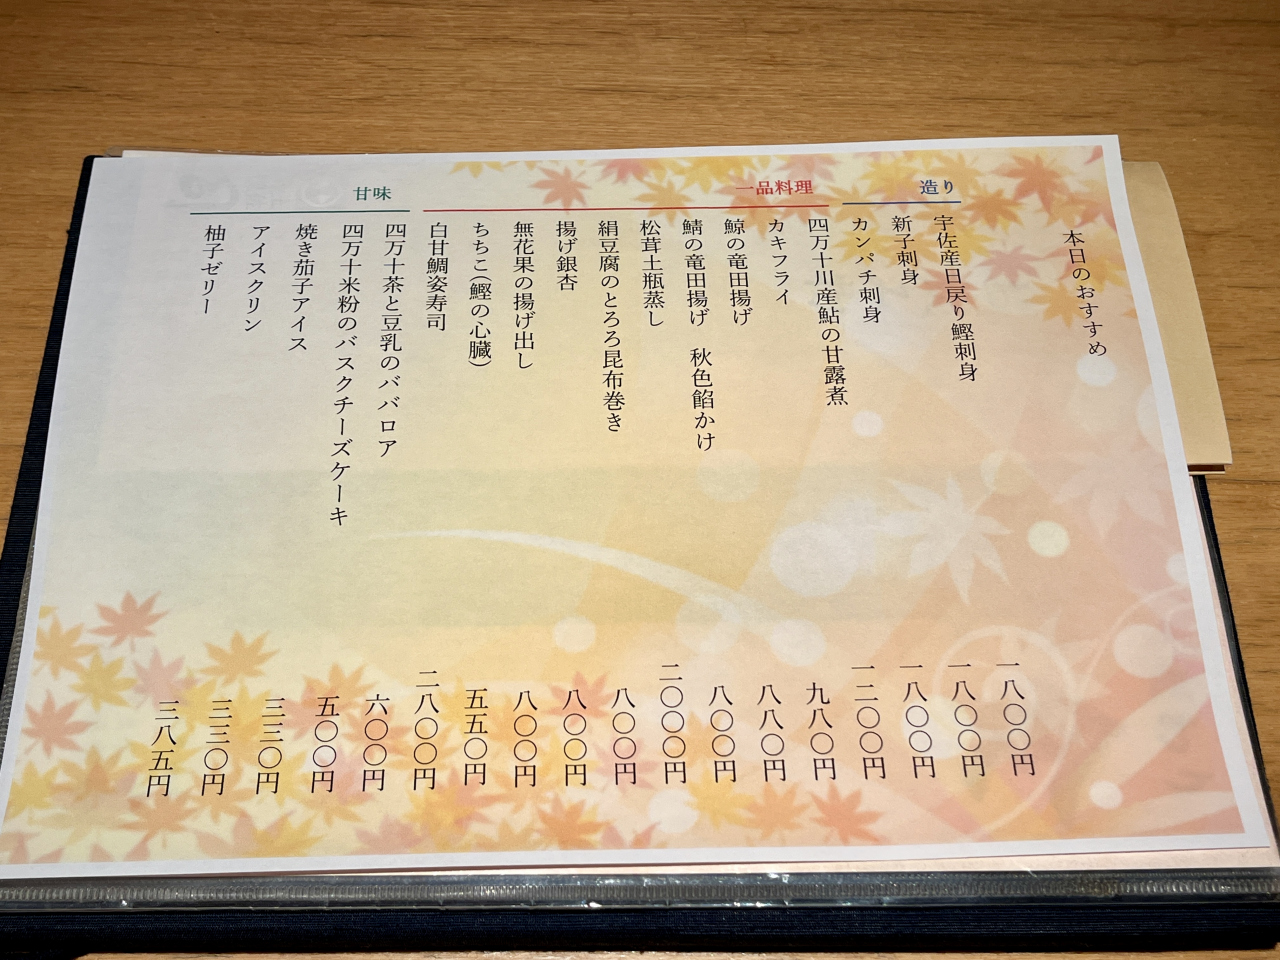 本日のおすすめ
造り
宇佐産日戻り鰹刺身 一八〇〇円
新子刺身 一八〇〇円
カンパチ刺身 一八〇〇円
一品料理
四万十川産鮎の甘露煮 一二〇〇円
カキフライ 九八〇円
鯨の竜田揚げ 八八〇円
鯖の竜田揚げ 秋色餡かけ 八〇〇円
松茸土瓶蒸し 二〇〇〇円
絹豆腐のとろろ昆布巻き 八〇〇円
揚げ銀杏 八〇〇円
無花果の揚げ出し 八〇〇円
ちちこ(鰹の心臓) 五五〇円
白甘鯛姿寿司 二八〇〇円
甘味
四万十茶と豆乳のババロア 六〇〇円
四万十米粉のバスクチーズケーキ 五〇〇円
焼き茄子アイス 三三〇円
アイスクリン 三三〇円
柚子ゼリー 三八五円